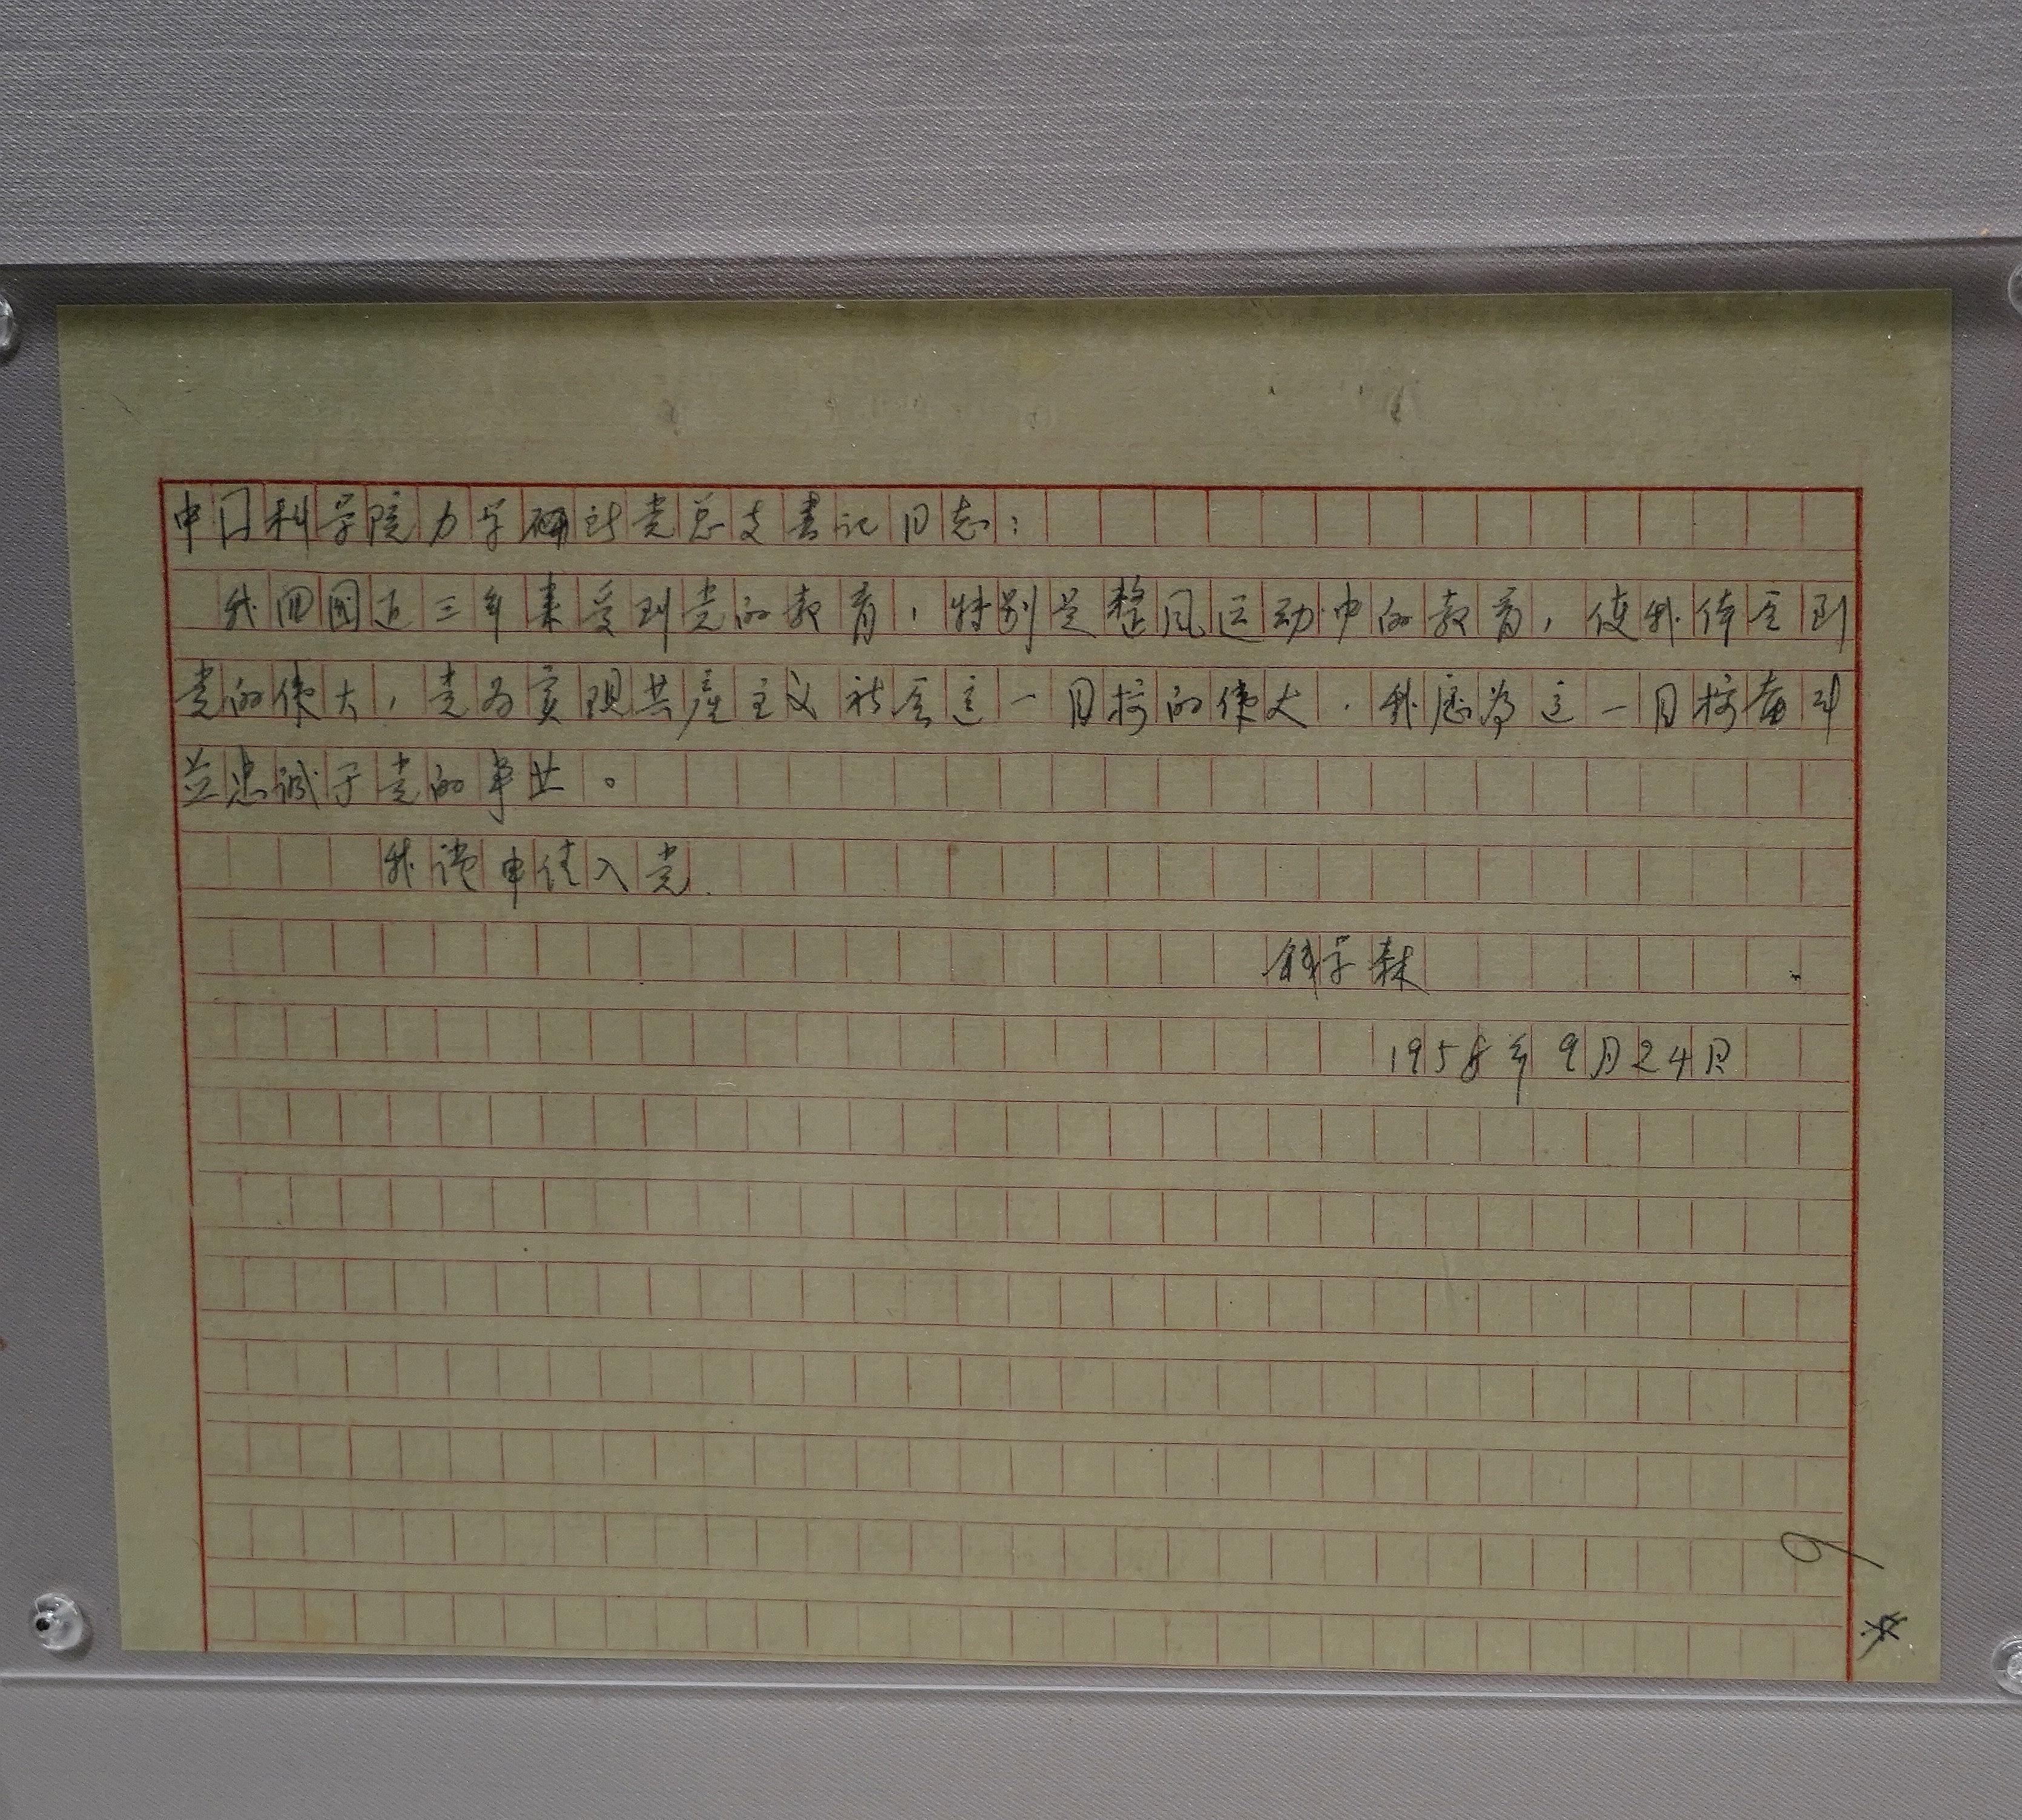 中国科学院力学研究所党总支书记同志：
我回國近三年来受到党的教育，特别是整风运动中的教育，使我体会到
党的伟大，党为实现共產主义社会这一目标的伟大．我愿为这一目标奋斗
並忠诚于党的事业。
我谨申请入党．
钱学森
1958年9月24日
9